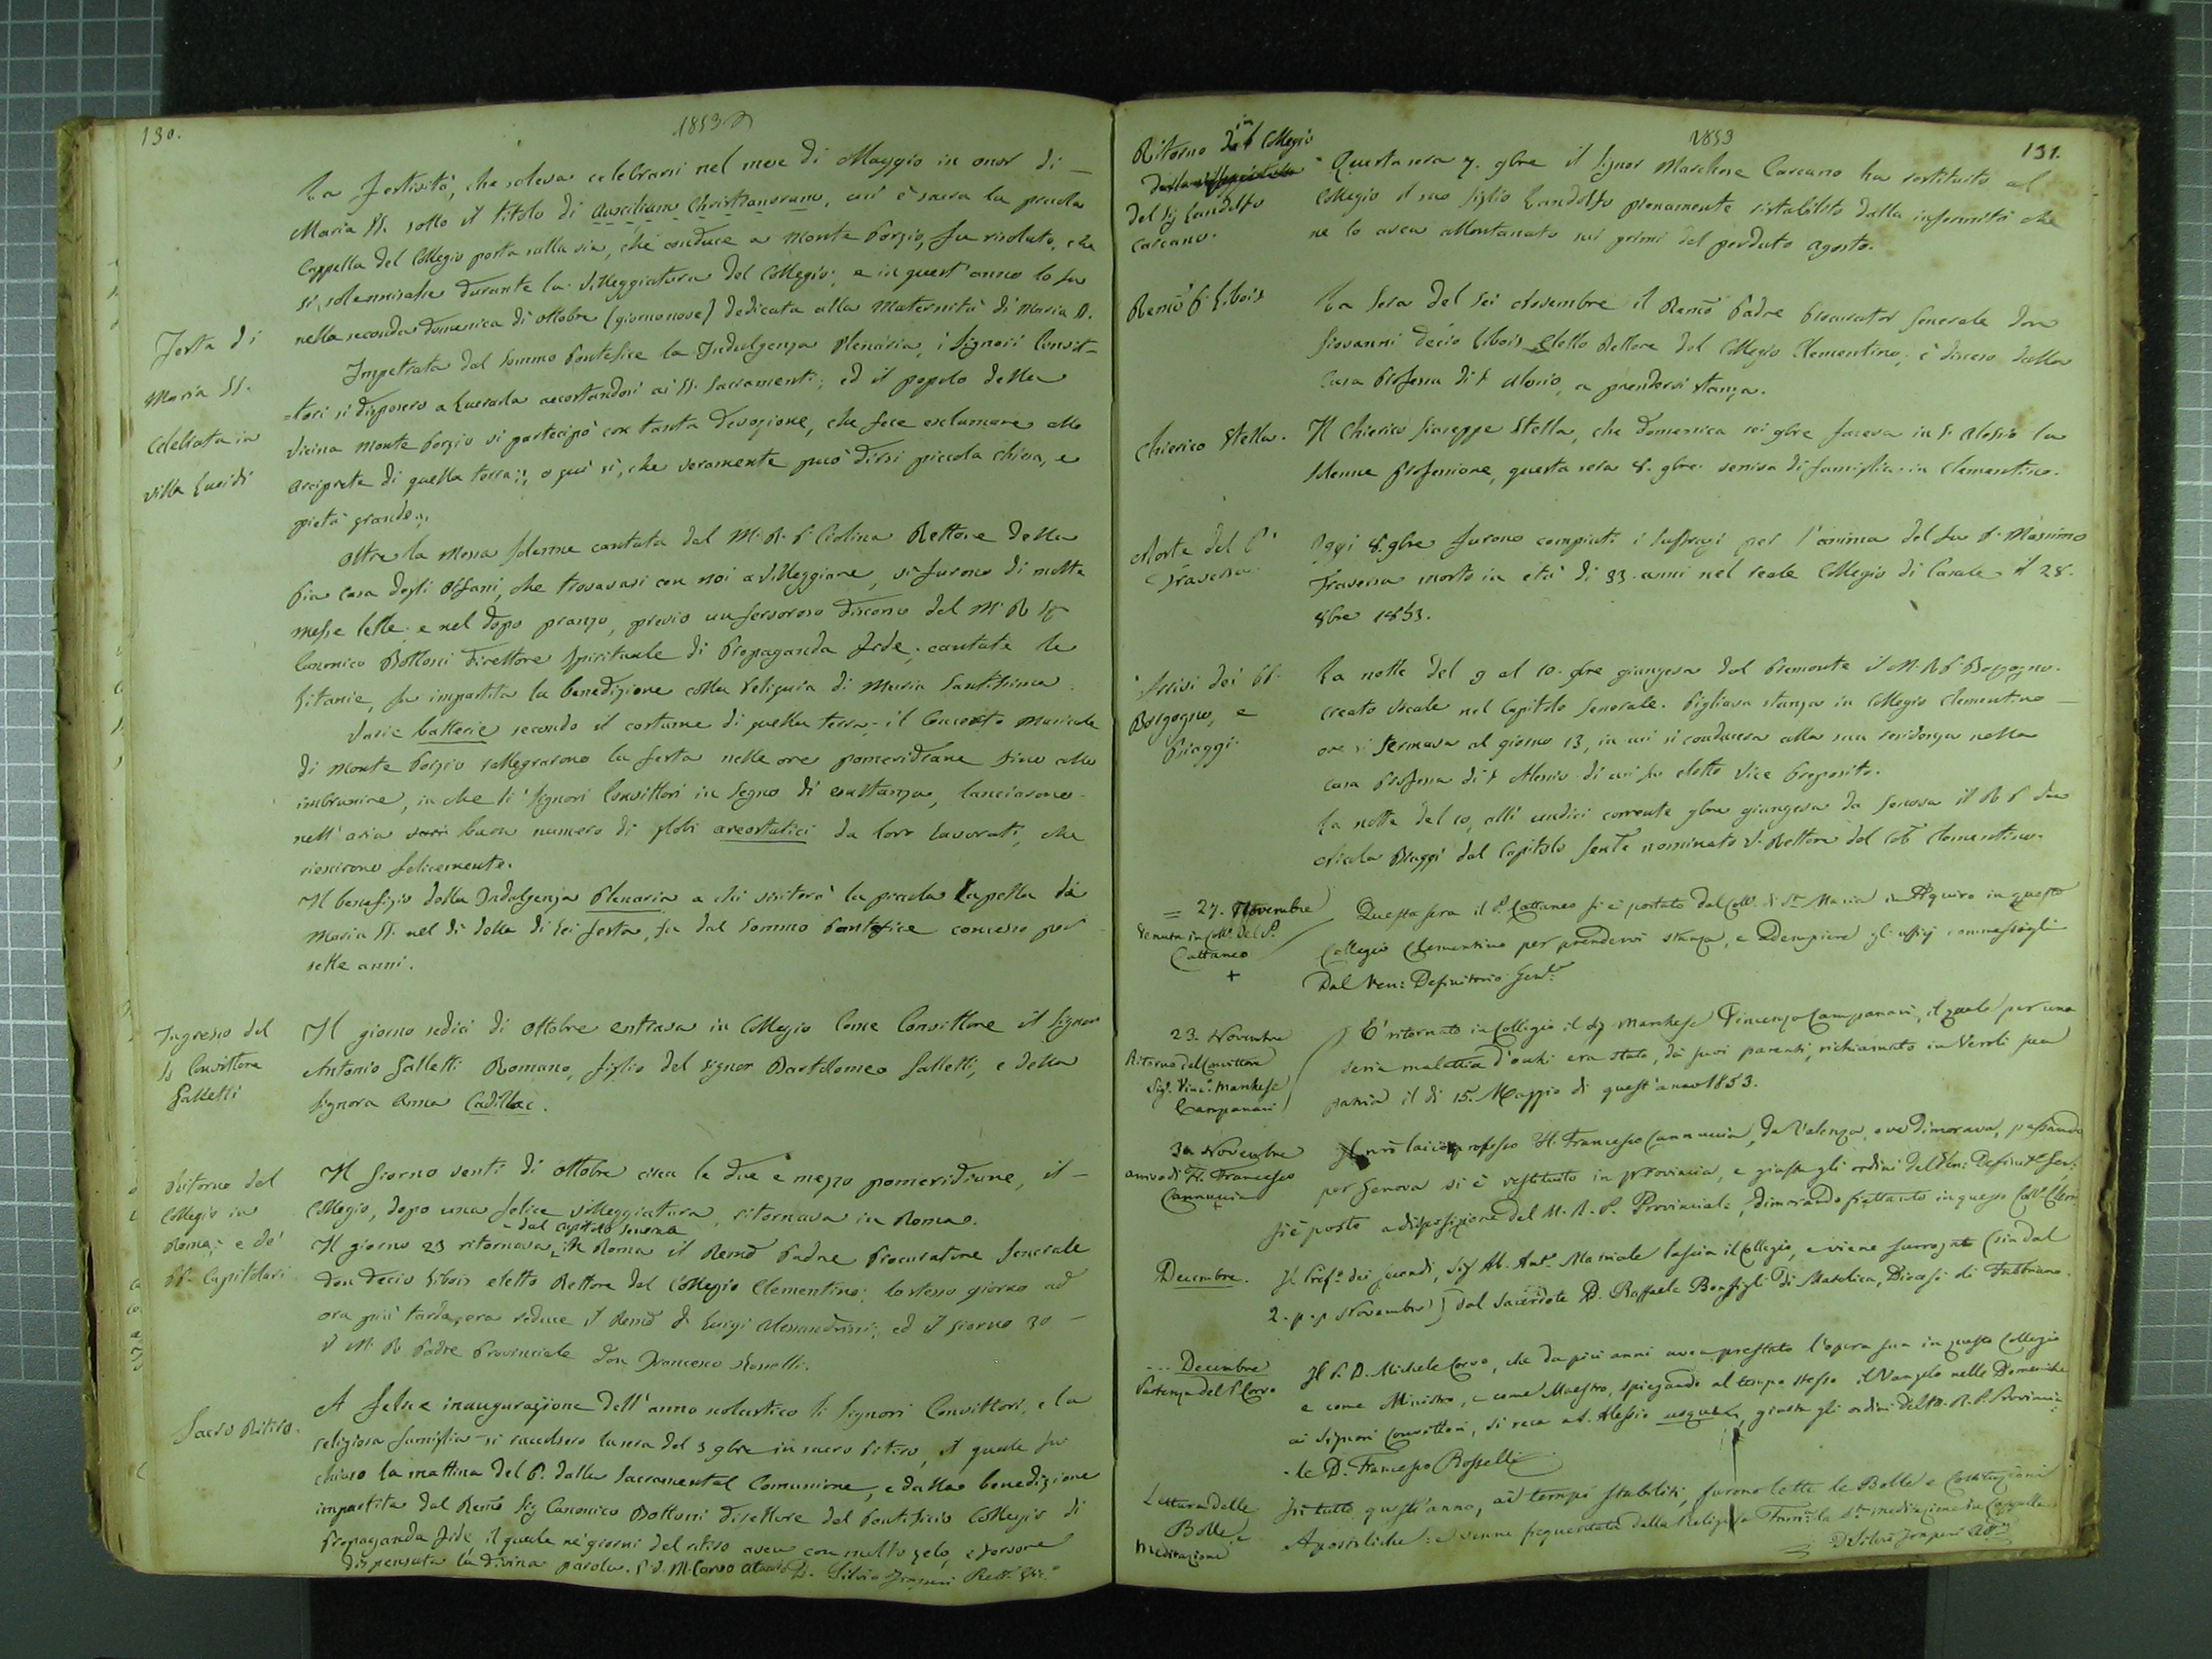 130.
1853
La festività, che soleva celebrarsi nel mese di Maggio in onor di
Maria SS. sotto il titolo di Auxilium Christianorum, cui è sacra la piccola
Cappella del Collegio posta sulla via, che conduce a Monte Porzio, fu risoluto, che
si solennizasse durante la Villeggiatura del Collegio; e in quest'anno lo fu
nella seconda domenica di ottobre (giorno nove) dedicata alla Maternità di Maria SS.
Festa di
Maria SS.
celebrata in
villa Lucidi
Impetrata dal Sommo Pontefice la Indulgenza Plenaria, i Signori Convit=
=tori si disposero a lucrarla accostandosi ai SS. Sacramenti; ed il popolo della
vicina Monte Porzio vi partecipò con tanta devozione, che fece esclamare allo
Arciprete di quella terra: o qui si, che veramente può dirsi piccola chiesa, e
pietà grande.
Oltre la Messa solenne cantata dal M. R. P. Ciolina Rettore della
Pia Casa degli Orfani, che trovavasi con noi a Villeggiare, vi furono di molte
messe lette; e nel dopo pranzo, previo un fervoroso discorso del M. R. Sig.
Canonico Bottoni Direttore Spirituale di Propaganda Fide, cantate le
Litanie, fu impartita la benedizione colla reliquia di Maria Santissima.
Varie batterie secondo il costume di quella terra, il Concerto Musicale
di Monte Porzio rallegrarono la festa nelle ore pomeridiane fino allo
imbrunire, in che li Signori Convittori in segno di esultanza, lanciarono
nell'aria buon numero di globi areostatici da loro lavorati, che
riescirono felicemente.
Il benefizio della Indulgenza Plenaria a chi visiterà la piccola Cappella di
Maria SS. nel dì della di Lei festa, fu dal Sommo Pontefice concesso per
sette anni.
Ingresso del
Convittore
Galletti
Il giorno sedici di ottobre entrava in Collegio come Convittore il Signor
Antonio Galletti Romano, figlio del signor Bartolomeo Galletti, e della
Signora Anna Cadillac.
Ritorno del
Collegio in
Roma; e de'
PP. Capitolari
Il giorno venti di ottobre circa le due e mezzo pomeridiane, il
Collegio, dopo una felice villeggiatura, ritornava in Roma.
Il giorno 23 ritornava dal capitolo generale in Roma il Remo Padre Procuratore Generale
don Decio Libois eletto Rettore del Collegio Clementino; lo stesso giorno ad
ora più tarda, era reduce il Remo P. Luigi Alessandrini; ed il giorno 30
il M. R. Padre Provinciale don Francesco Rosselli.
Sacro Ritiro.
A felice inaugurazione dell'anno scolastico li Signori Convittori, e la
religiosa famiglia si raccolsero la sera del 3 9bre in sacro ritiro, il quale fu
chiuso la mattina del 6. dalla Sacramental Comunione, e dalla benedizione
impartita dal Remo Sig. Canonico Bottoni direttore del Pontificio Collegio di
Propaganda Fide il quale ne' giorni del ritiro avea con molto zelo, e fervore
dispensata la divina parola. P. D. M. Corvo D. Silvio Imperi Rett.
1853
131.
Ritorno in Collegio
del Sig Landolfo
Carcano.
Questa sera 7. 9bre il Signor Marchese Carcano ha restituito al
Collegio il suo figlio Landolfo pienamente ristabilito dalla infermità che
ne lo avea allontanato sui primi del perduto agosto.
Remo P. Libois
La sera del sei Novembre il Remo Padre Procurator Generale don
Giovanni Decio Libois eletto Rettore del Collegio Clementino, è disceso dalla
Casa Professa di S. Alessio, a prendervi stanza.
Chierico Stella.
Il Chierico Giuseppe Stella, che domenica sei 9bre faceva in S. Alessio la
solenne Professione, questa sera 8. 9bre veniva di famiglia in Clementino.
Morte del P.
Traversa.
Oggi 8. 9bre furono compiuti i suffragi per l'anima del fu P. Massimo
Traversa morto in età di 33. anni nel reale Collegio di Casale il 28.
8bre 1853.
Arrivi dei PP.
Borgogno, e
Biaggi.
La notte del 9 al 10. 9bre giungeva dal Piemonte il M. R. P. Borgogno.
creato Vocale nel Capitolo Generale. Pigliava stanza in Collegio Clementino
ove si fermava al giorno 13, in cui si conduceva alla sua residenza nella
casa Professa di S. Alessio di cui fu eletto Vice Preposito.
La notte del 10, alli undici corrente 9bre giungeva da Genova il R. P. don
Nicola Biaggi dal Capitolo Genle nominato V. Rettore del Coll. Clementino.
= 27. Novembre
Venuta in Coll. del P.
Cattaneo
+
Questa sera il P. Cattaneo si è portato dal Coll. di S.ta Maria in Aquiro in questo
Collegio Clementino per prendervi stanza, e adempiere gli uffizj commessigli
Dal Ven: Definitorio Genle.
23. Novembre
Ritorno del Convittore
Sigr. Vinc. Marchese
Campanari
E' ritornato in Collegio il Sig Marchese Vincenzo Campanari, il quale per una
seria malattia d'occhi era stato, da suoi parenti, richiamato in Veroli sua
patria il dì 15. Maggio di quest'anno 1853.
30 Novembre
arrivo di Fr. Francesco
Cannuccia
+
Il nro laico professo Fr. Francesco Cannuccia, da Valenza, ove dimorava, passando
per Genova si è restituito in provincia, e giusta gli ordini del Ven: Definit. Gen:
si è posto a disposizione del M. R. P. Provinciale, dimorando frattanto in questo Coll. Clem:
Decembre.
Il Pref. dei secondi, Sig Ab. Ant. Masciale lascia il Collegio, e viene surrogato (sin dal
2. p. p Novembre) dal Sacerdote D. Raffaele Bonfigli di Matelica, Diocesi di Fabriano.
... Decembre
Partenza del P. Corvo
Il P. D. Michele Corvo, che da più anni avea prestato l'opera sua in questo Collegio
e come Ministro, e come Maestro, spiegando al tempo stesso il Vangelo nelle Domeniche
ai Signori Convittori, si reca a S. Alessio, giusta gli ordini del M. R. P. Provincia
-le D. Francesco Rosselli
Lettura delle
Bolle, e
meditazione
In tutto quest'anno, ai tempi stabiliti, furono lette le Bolle e Costituzioni
Apostoliche: e venne frequentata dalla Religiosa Fami:a la S.ta meditazione in Cappella
D. Silvio Imperi